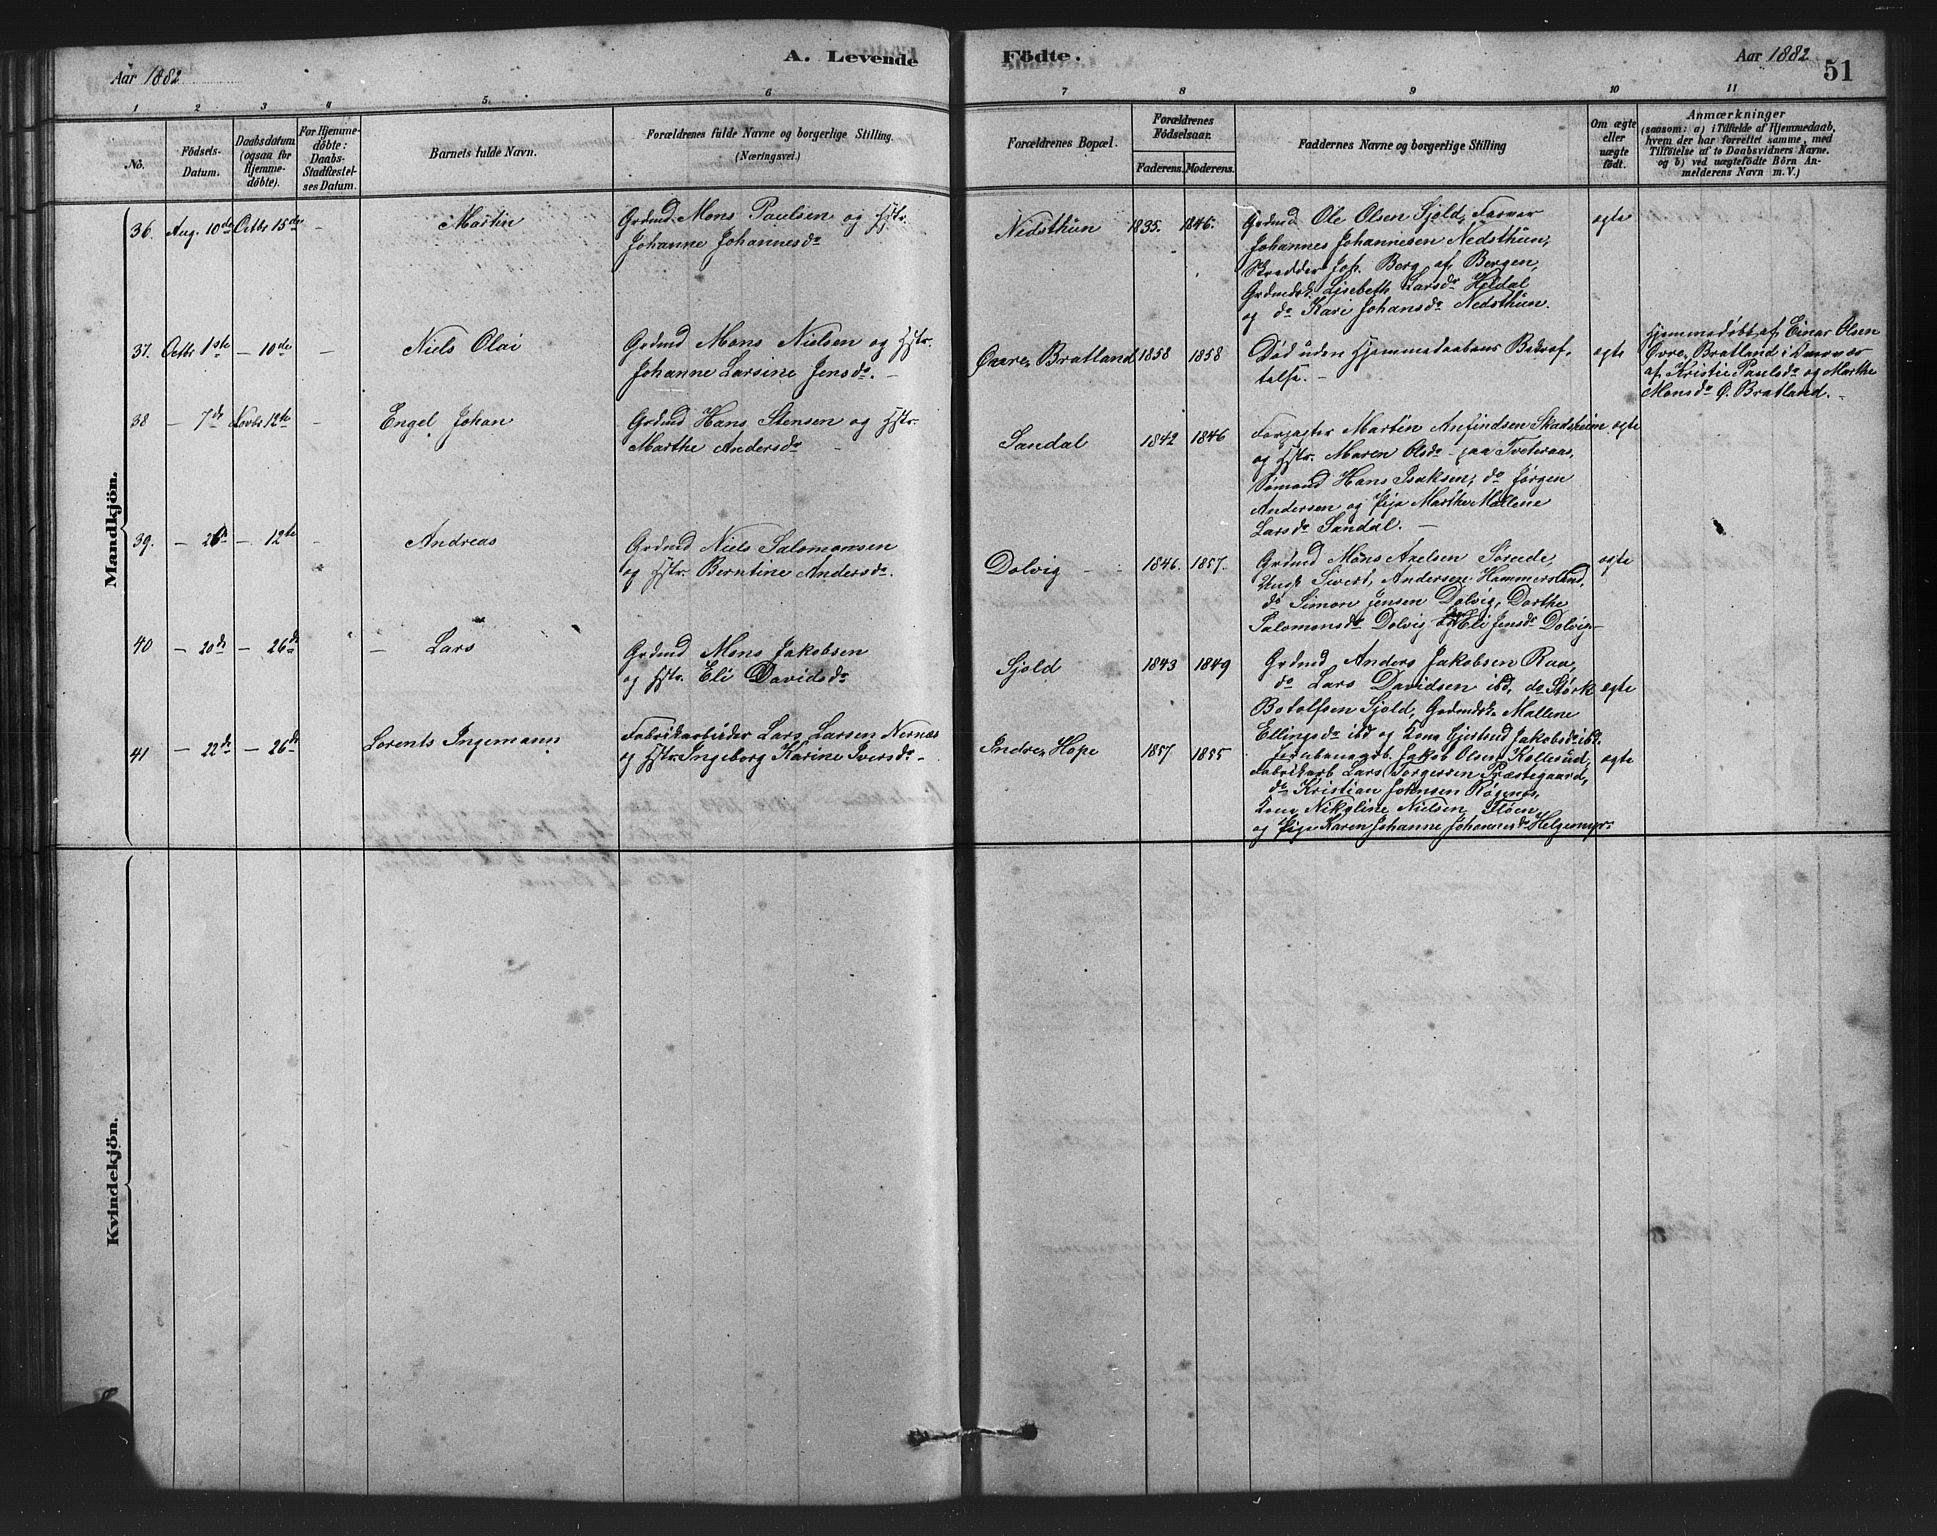 Aar 1882
A. Levende
Födte.
Aar 1882
51
1 2 3 4 5. 6 7 8 9 10 11
No.
Födsels-
Datum.
Daabsdatum
(ogsaa for
Hjemme-
döbte).
For Hjemme-
döbte:
Daabs-
Stadfæstel-
ses Datum.
Barnets fulde Navn.
Forældrenes fulde Navne og borgerlige Stilling.
(Næringsvei.)
Forældrenes Bopæl.
Forældrenes
Födselsaar.
Faderens. Moderens.
Faddernes Navne og borgerlige Stilling
Om ægte
eller
uægte
födt.
Anmærkninger
(saasom: a) i Tilfælde af Hjemmedaab,
hvem der har forrettet samme, med
Tilföielse af to Daabsvidners Navne.
og b) ved uægtefödte Börn An-
melderens Navn m. V.)
Mandkjön.
36. Aug. 10de Octbr 15de -
Martin
Grdmd. Mons Paulsen og Hstr.
Johanne Johannesdr
Nedsthun 1835. 1846.
Grdmd Ole Olsen Sjold,
Johannes Johannesen Nedsthun,
Skrædder Joh. Berg af Bergen,
Grdmdsk. Lisebeth Larsdr Heldal
og do Kari Johansdr Nedsthun.
egte
37. Octbr 1ste - 10de -
Niels Olai
Grdmd Mons Nielsen og Hstr.
Johanne Larsine Jensdr. -
Øvre Bratland 1858 1858
Død uden Hjemmedaabens Bekræf-
telse. -
egte
Hjemmedøbt af Einar Olsen
Øvre Bratland i Nærvær
af Kristie Paulsdr og Marthe
Monsdr Ø. Bratland. -
38 - 7de Novbr 12te -
Engel Johan
Grdmd Hans Stensen og Hstr.
Marthe Andersdr -
Sandal 1842 1846
Forpagter Martin Anfindsen Skadsheim
og Hstr. Maren Olsdr - paa Tveteraas,
Sømand Hans Isaksen, do Jørgen
Andersen og Pige Marthe Mallene
Larsdr Sandal. -
egte
39. - 12te -
Andreas
Grdmd Niels Salomonsen
og Hstr. Berntine Andersdr.
Dolvig - 1846. 1857.
Grdmd Mons Axelsen Søreide,
Ungk Sivert Andersen Hammersland,
do Simon Jensen Dolvig, Dorthe
Salomonsdr Dolvig Eli Jensdr Dolvig -
egte
40 - 20de - 26de
- Lars
Grdmd Mons Jakobsen
og Hstr. Eli Davidsdr
Sjold 1843 1849
Grdmd Anders Jakobsen Raa,
do Lars Davidsen ibd, do Størk
Botolfsen Sjold, Grdmdsk Mallene
Ellingsdr ibd og Kone Gjertrud Jakobsdr ibd.
egte
41 - 22de - 26de
Lorents Ingemann
Fabrikarbeider Lars Larsen Nernæs
og Hstr. Ingeborg Karine Iversdr -
Indre Hope 1857 1855
Jernbanearb. Jakob Olsen Kollerud,
Fabrikarb Lars Torgersen Præstegaard,
do Kristian Johnsen Røgenes,
Kone Nikoline Nielsen Fløen
og Pige Karen Johanne Johannesdr Helgemyr.
egte
Kvindekjön.